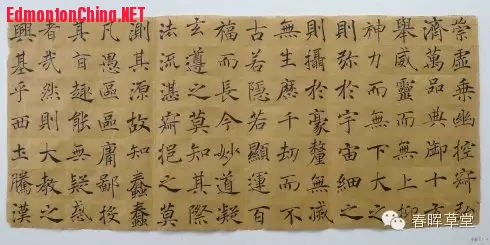 EdmontonChina.NET
崇虛乘幽控寂弘
濟萬品典御十方
舉威靈而無上抑
神力而無下大之
則弥於宇宙細之
則攝於豪釐無滅
無生歷千劫而不
古若隱若顯運百
福而長今妙道凝
玄遵之莫知其際
法流湛寂挹之莫
測其源故知蠢蠢
凡愚區區庸鄙投
其旨趣能無疑惑
者哉然則大教之
興基乎西土騰漢
春晖草堂